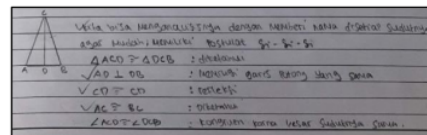 C
A D B
kita bisa menganalisisnya dengan memberi nama disetiap sudutnya
agar mudah, memiliki postulat Si - Si - Si
△ACD ≅ △DCB : diketahui
√ AD ⊥ DB : garis potong yang sama
√ CD ≅ CD : refleksi
√ AC ≅ BC : Diketahui
∠ACD ≅ ∠DCB : kongruen karna besar sudutnya sama.